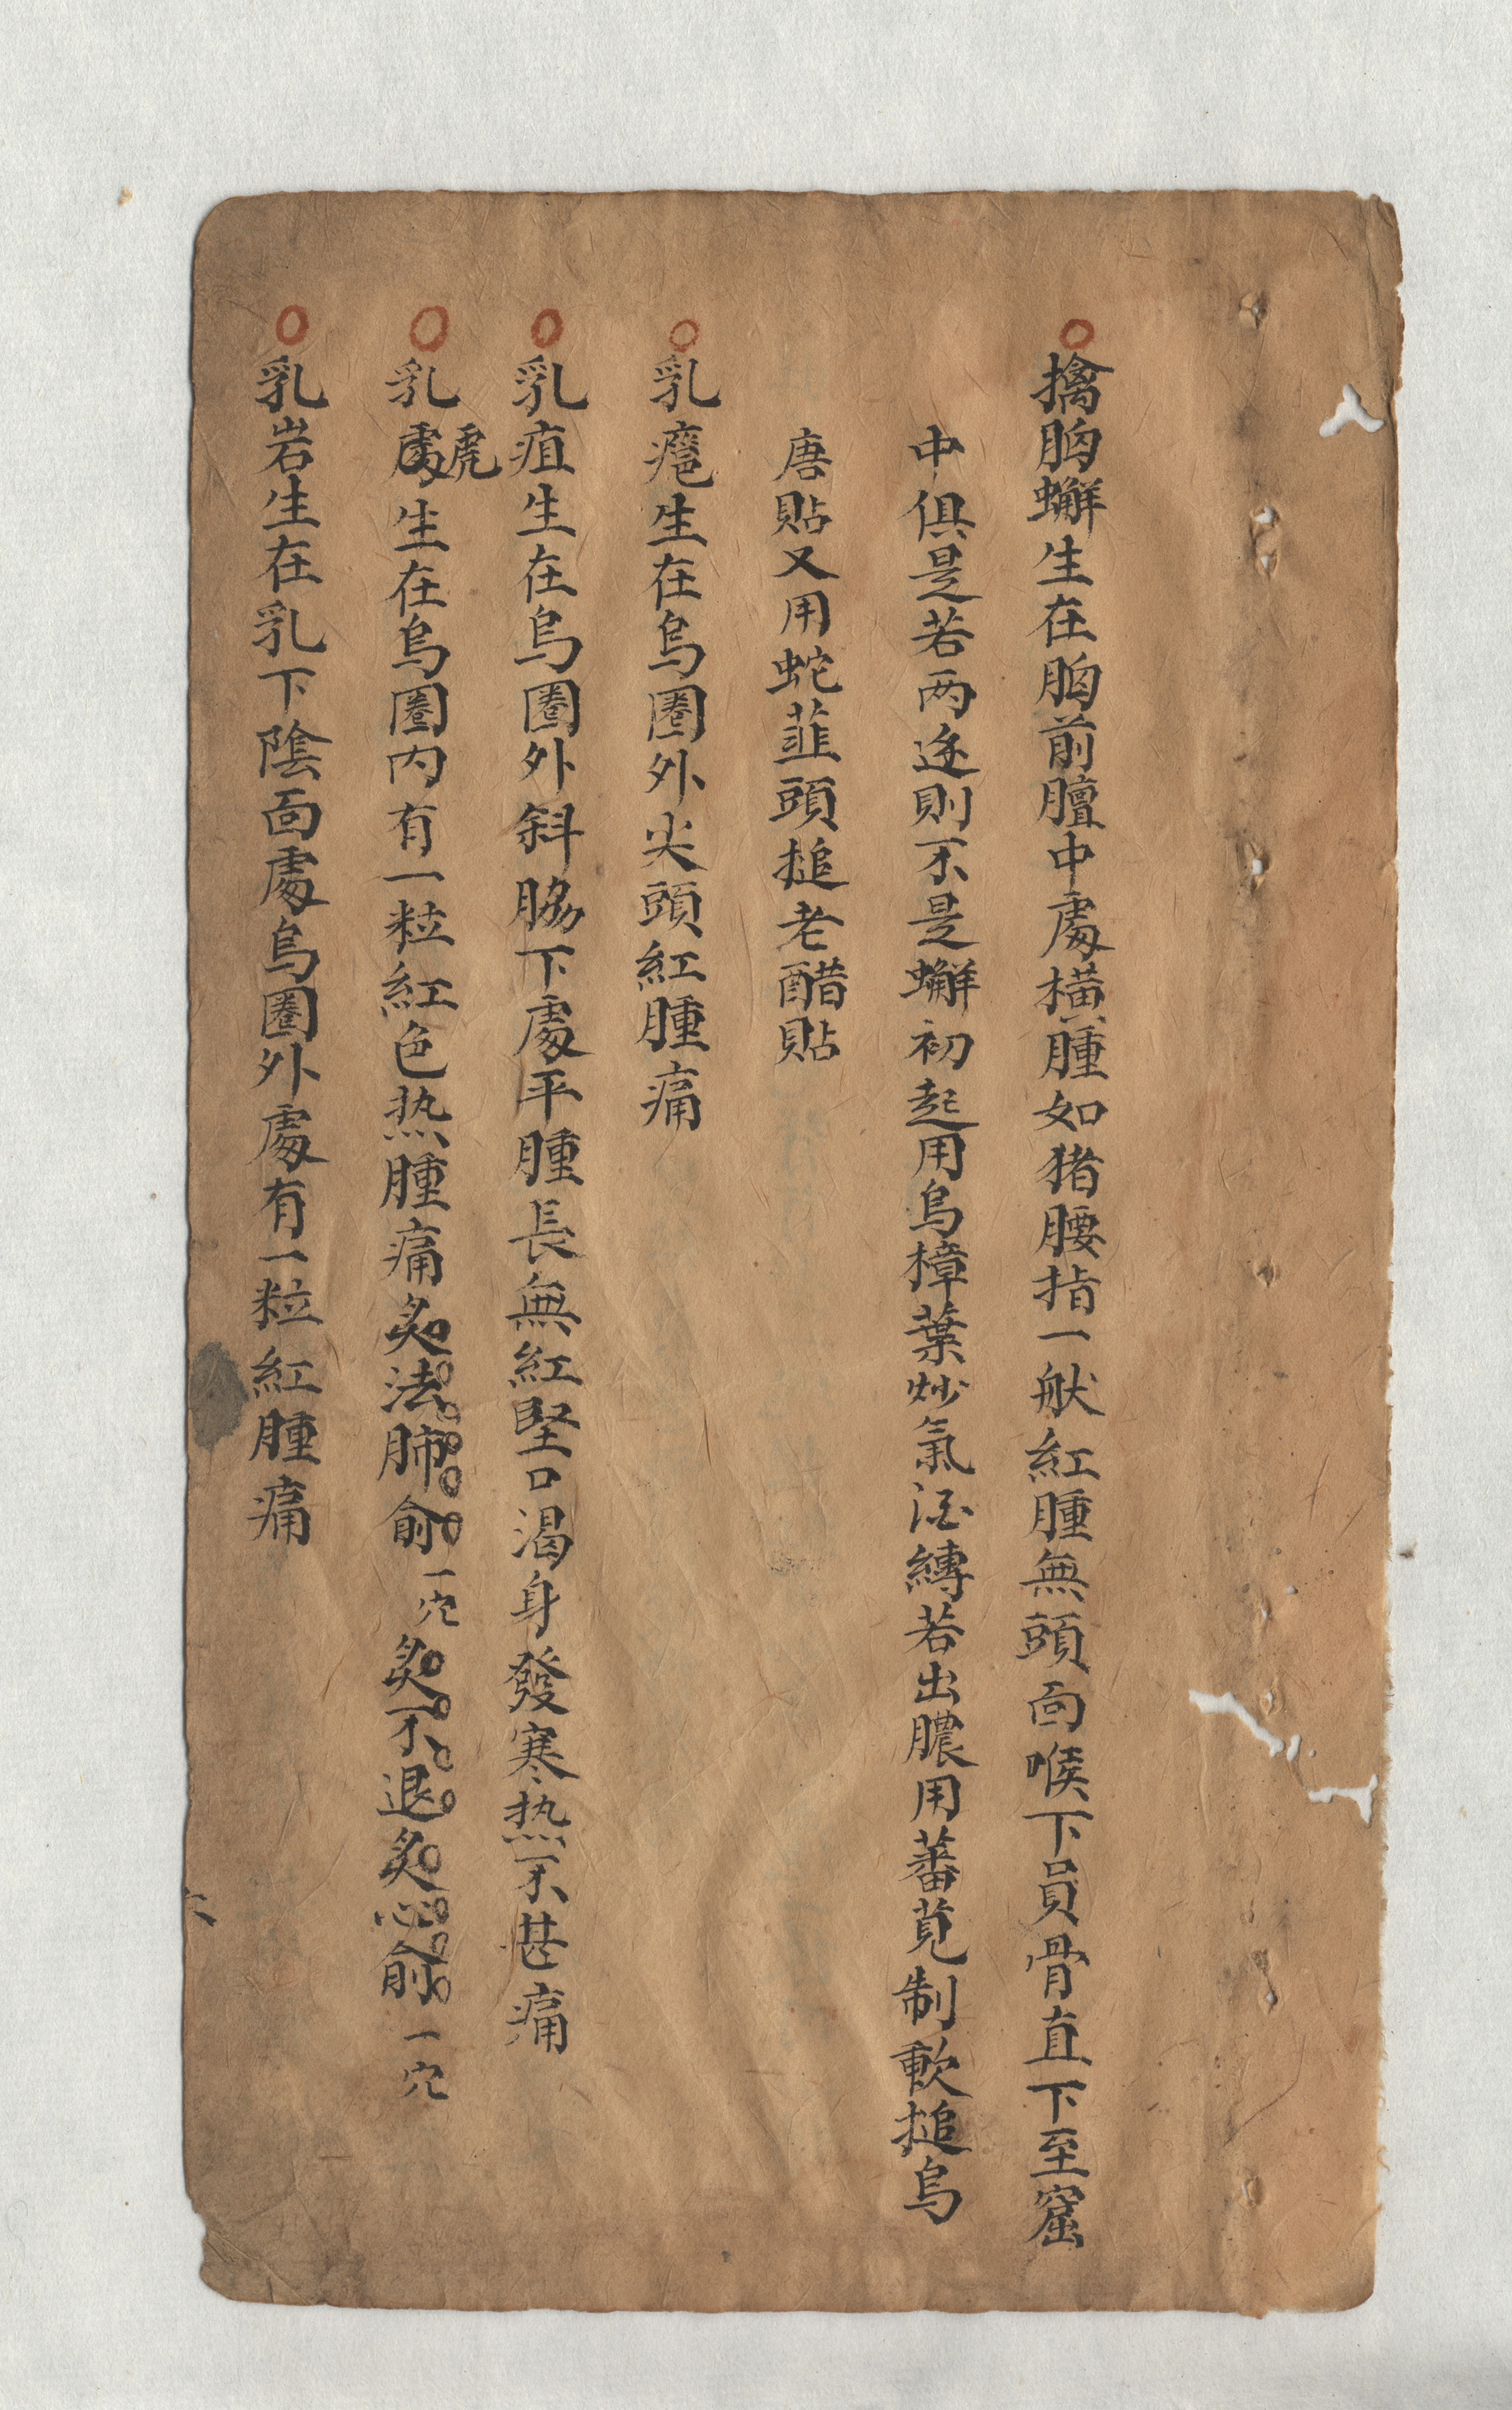 ○擒胸蠏生在胸前膻中處橫腫如猪腰指一般紅腫無頭面喉下員骨直下至窟
中俱是若两边則不是蠏初起用烏樟葉炒氣酒縛若出膿用蕃莧制軟搥烏
唐貼又用蛇韮頭搥老醋貼
○乳癰生在烏圈外尖頭紅腫痛
○乳疽生在烏圈外斜脇下處平腫長無紅堅口渴身發寒热不甚痛
○乳虎生在烏圈内有一粒紅色热腫痛炙法肺俞一穴炙不退炙心俞一穴
○乳岩生在乳下陰面處烏圈外處有一粒紅腫痛